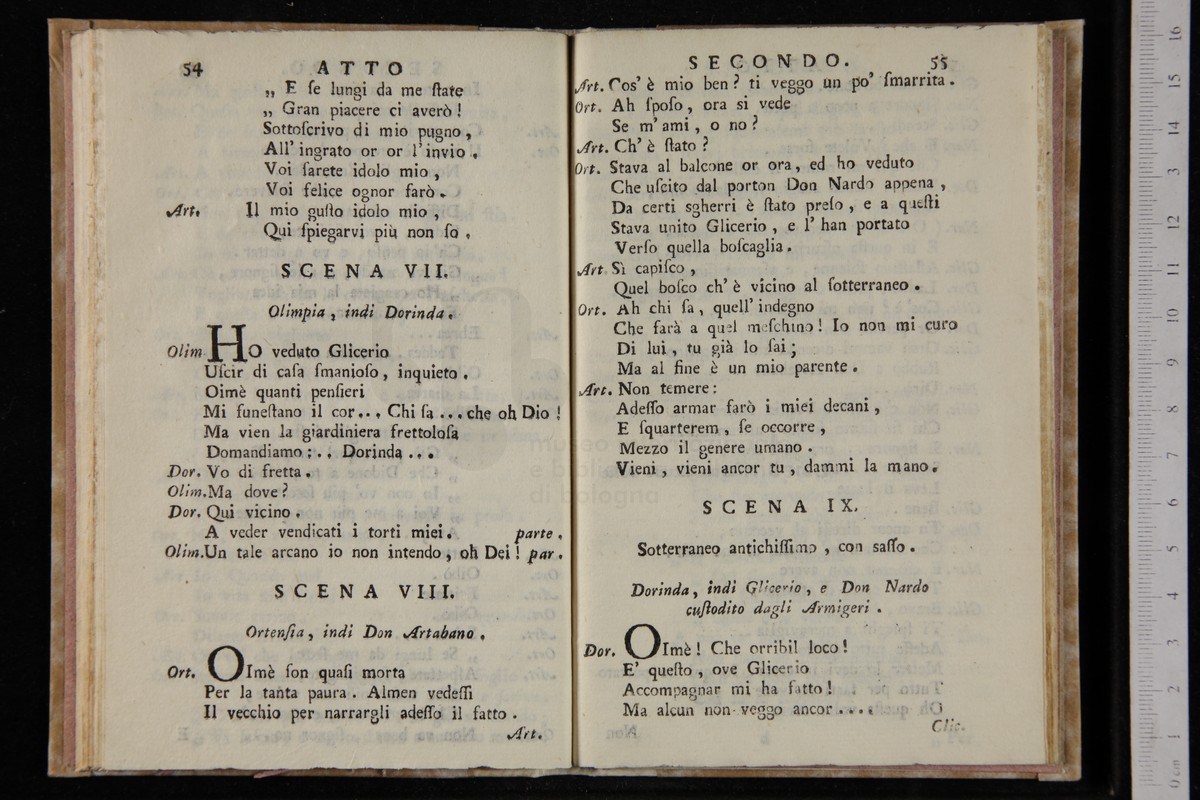 54 ATTO
„ E ſe lungi da me ſtate
„ Gran piacere ci averò!
Sottoſcrivo di mio pugno,
All' ingrato or or l' invio.
Voi ſarete idolo mio,
Voi felice ognor farò.
Art. Il mio guſto idolo mio,
Qui ſpiegarvi più non ſo.
SCENA VII.
Olimpia, indi Dorinda.
Olim. HO veduto Glicerio
Uſcir di caſa ſmanioſo, inquieto.
Oimè quanti penſieri
Mi funeſtano il cor... Chi ſa ... che oh Dio!
Ma vien la giardiniera frettoloſa
Domandiamo ... Dorinda ...
Dor. Vo di fretta.
Olim. Ma dove?
Dor. Qui vicino.
A veder vendicati i torti miei. parte.
Olim. Un tale arcano io non intendo, oh Dei! par.
SCENA VIII.
Ortenſia, indi Don Artabano.
Ort. OImè ſon quaſi morta
Per la tanta paura. Almen vedeſſi
Il vecchio per narrargli adeſſo il fatto.
Art.
SECONDO. 55
Art. Cos' è mio ben? ti veggo un po' ſmarrita.
Ort. Ah ſpoſo, ora si vede
Se m' ami, o no?
Art. Ch' è ſtato?
Ort. Stava al balcone or ora, ed ho veduto
Che uſcito dal porton Don Nardo appena,
Da certi sgherri è ſtato preſo, e a queſti
Stava unito Glicerio, e l' han portato
Verſo quella boſcaglia.
Art. Sì capiſco,
Quel boſco ch' è vicino al ſotterraneo.
Ort. Ah chi ſa, quell' indegno
Che farà a quel meſchino! Io non mi curo
Di lui, tu già lo ſai;
Ma al fine è un mio parente.
Art. Non temere:
Adeſſo armar farò i miei decani,
E ſquarterem, ſe occorre,
Mezzo il genere umano.
Vieni, vieni ancor tu, dammi la mano.
SCENA IX.
Sotterraneo antichiſſimo, con saſſo.
Dorinda, indi Glicerio, e Don Nardo
cuſtodito dagli Armigeri.
Dor. OImè! Che orribil loco!
E' queſto, ove Glicerio
Accompagnar mi ha fatto!
Ma alcun non veggo ancor ....
Clic.